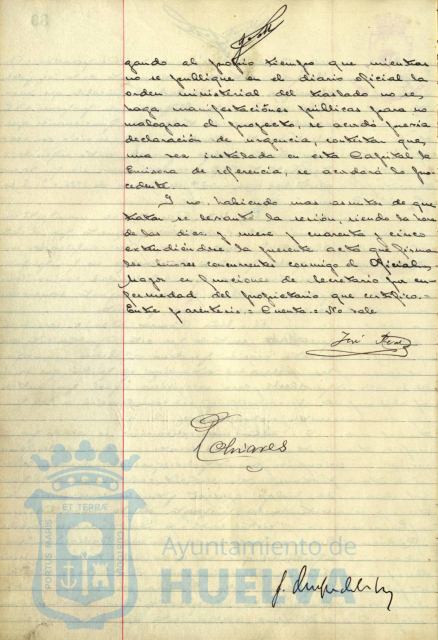 gando al propio tiempo que mientras
no se publique en el diario oficial la
orden ministerial del traslado no se
haga manifestaciónes públicas para no
malograr el proyecto, se acordó previa
declaración de urgencia, contestar que
una vez instalada en esta Capital la
Emisora de referencia, se acordará lo pro-
cedente.
Y no habiendo mas asuntos de que
tratar se levantó la sesión, siendo la hora
de las diez y nueve y cuarenta y cinco
extendiéndose la presente acta que firman
los Señores concurrentes conmigo el Oficial
Mayor en funciones de Secretario por en-
fermedad del propietario que certifico.=
Entre parentesis.= Cuenta.= No vale
José
Olivares
PORTUS MARIS ET TERRÆ CUSTODIA
Ayuntamiento de
HUELVA